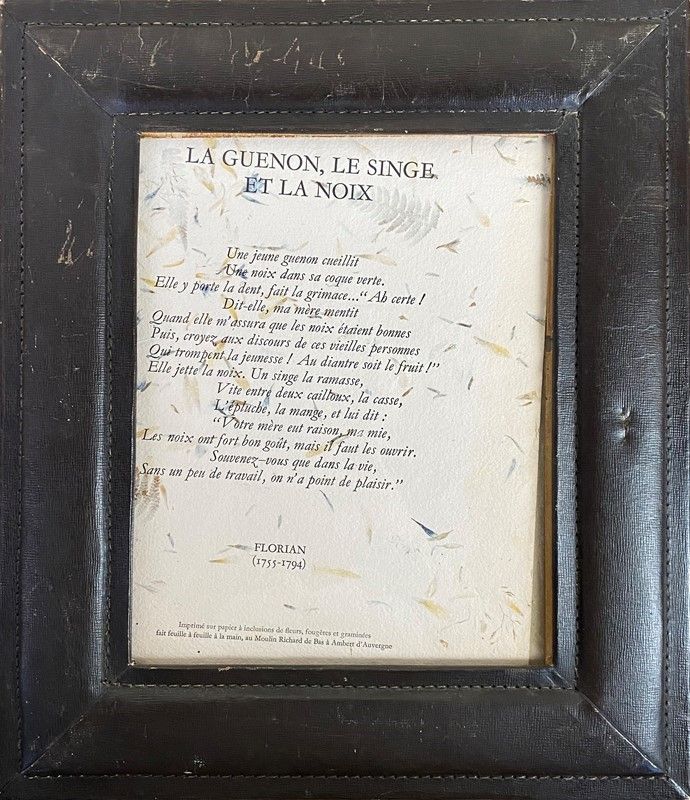 LA GUENON, LE SINGE
ET LA NOIX
Une jeune guenon cueillit
Une noix dans sa coque verte.
Elle y porte la dent, fait la grimace... “ Ah certe !
Dit-elle, ma mère mentit
Quand elle m'assura que les noix étaient bonnes
Puis, croyez aux discours de ces vieilles personnes
Qui trompent la jeunesse ! Au diantre soit le fruit !”
Elle jette la noix. Un singe la ramasse,
Vite entre deux cailloux, la casse,
L'épluche, la mange, et lui dit :
“Votre mère eut raison, ma mie,
Les noix ont fort bon goût, mais il faut les ouvrir.
Souvenez-vous que dans la vie,
Sans un peu de travail, on n'a point de plaisir.”
FLORIAN
(1755-1794)
Imprimé sur papier à inclusions de fleurs, fougères et graminées
fait feuille à feuille à la main, au Moulin Richard de Bas à Ambert d'Auvergne